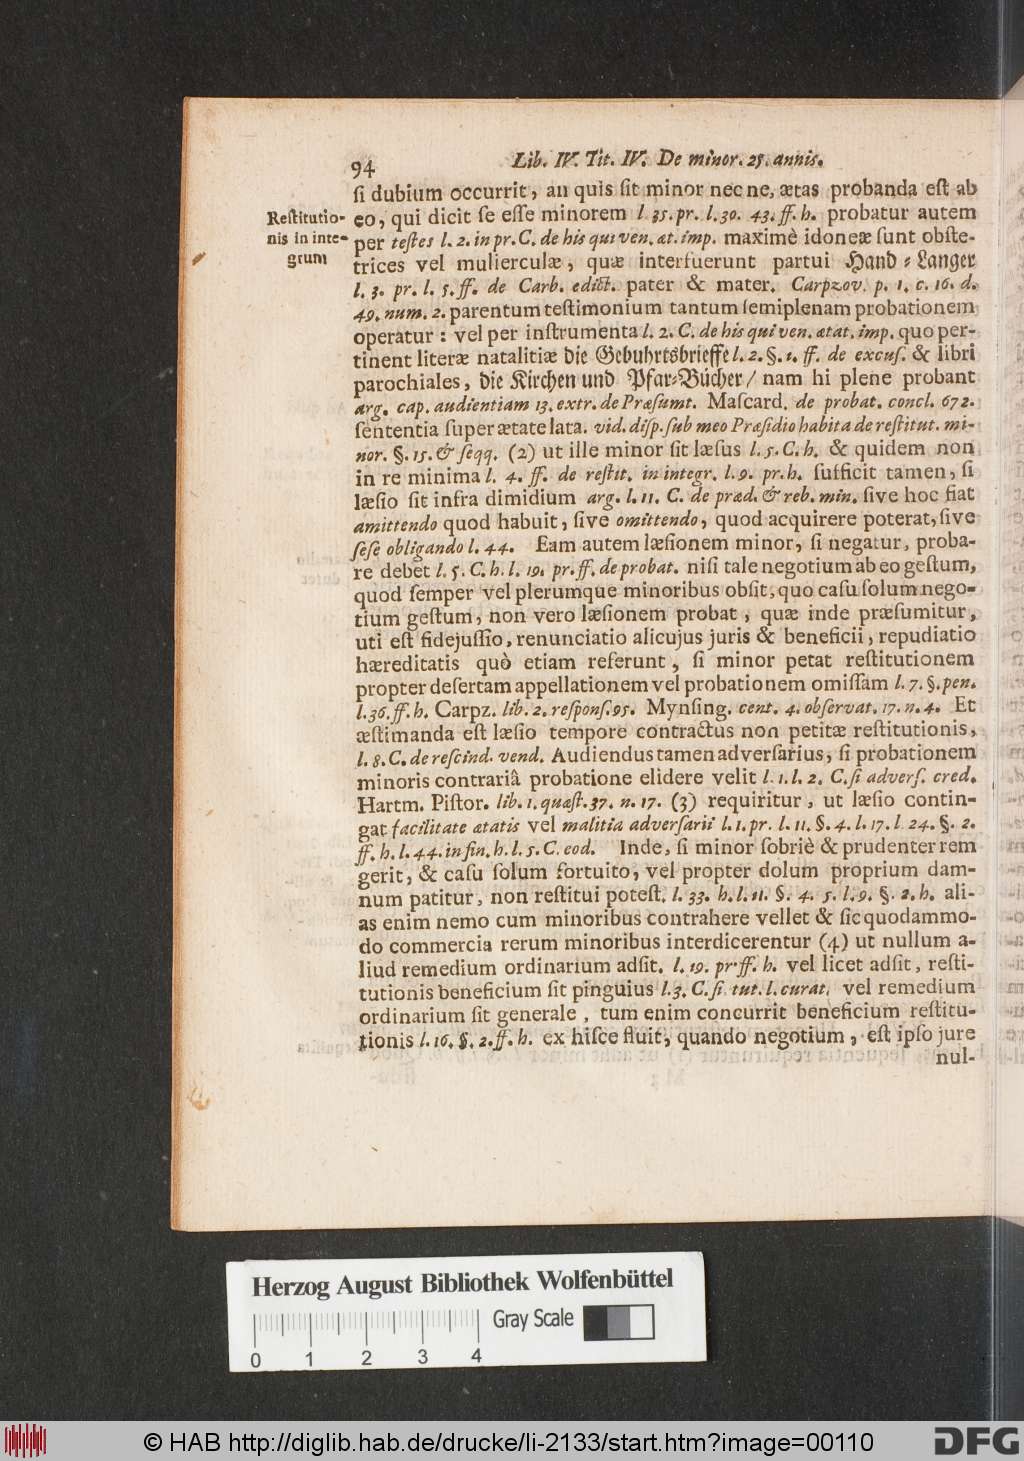 94 Lib. IV. Tit. IV. De minor. 25. annis.
ſi dubium occurrit, an quis ſit minor nec ne, ætas probanda eſt ab
Reſtitutio-
nis in inte-
grum
eo, qui dicit ſe eſſe minorem l. 35. pr. l. 30. 43. ff. h. probatur autem
per teſtes l. 2. in pr. C. de his qui ven. æt. imp. maximè idoneæ ſunt obſte-
trices vel mulierculæ, quæ interfuerunt partui Hand-Langer
l. 3. pr. l. 5. ff. de Carb. edict. pater & mater. Carpzov. p. 1. c. 16. d.
49. num. 2. parentum teſtimonium tantum ſemiplenam probationem
operatur: vel per inſtrumenta l. 2. C. de his qui ven. ætat. imp. quo per-
tinent literæ natalitiæ die Gebuhrtsbrieffe l. 2. §. 1. ff. de excuſ. & libri
parochiales, die Kirchen und Pfar-Bücher / nam hi plene probant
arg. cap. audientiam 13. extr. de Præſumt. Maſcard. de probat. concl. 672.
ſententia ſuper ætate lata. vid. diſp. ſub meo Præſidio habita de reſtitut. mi-
nor. §. 15. & ſeqq. (2) ut ille minor ſit læſus l. 5. C. h. & quidem non
in re minima l. 4. ff. de reſtit. in integr. l. 9. pr. h. ſufficit tamen, ſi
læſio ſit infra dimidium arg. l. 11. C. de præd. & reb. min. ſive hoc fiat
amittendo quod habuit, ſive omittendo, quod acquirere poterat, ſive
ſeſe obligando l. 44. Eam autem læſionem minor, ſi negatur, proba-
re debet l. 5. C. h. l. 19. pr. ff. de probat. niſi tale negotium ab eo geſtum,
quod ſemper vel plerumque minoribus obſit, quo caſu ſolum nego-
tium geſtum, non vero læſionem probat, quæ inde præſumitur,
uti eſt fidejuſſio, renunciatio alicujus juris & beneficii, repudiatio
hæreditatis quò etiam referunt, ſi minor petat reſtitutionem
propter deſertam appellationem vel probationem omiſſam l. 7. §. pen.
l. 36. ff. h. Carpz. lib. 2. reſponſ. 95. Mynſing. cent. 4. obſervat. 17. n. 4. Et
æſtimanda eſt læſio tempore contractus non petitæ reſtitutionis,
l. 8. C. de reſcind. vend. Audiendus tamen adverſarius, ſi probationem
minoris contrariâ probatione elidere velit l. 1. l. 2. C. ſi adverſ. cred.
Hartm. Piſtor. lib. 1. quæſt. 37. n. 17. (3) requiritur, ut læſio contin-
gat facilitate ætatis vel malitia adverſarii l. 1. pr. l. 11. §. 4. l. 17. l 24. §. 2.
ff. h. l. 44. in fin. h. l. 5. C. eod. Inde, ſi minor ſobriè & prudenter rem
gerit, & caſu ſolum fortuito, vel propter dolum proprium dam-
num patitur, non reſtitui poteſt. l. 33. h. l. 11. §. 4. 5. l. 9. §. 2. h. ali-
as enim nemo cum minoribus contrahere vellet & ſic quodammo-
do commercia rerum minoribus interdicerentur (4) ut nullum a-
liud remedium ordinarium adſit. l. 19. pr. ff. h. vel licet adſit, reſti-
tutionis beneficium ſit pinguius l. 3. C. ſi tut. l. curat. vel remedium
ordinarium ſit generale, tum enim concurrit beneficium reſtitu-
tionis l. 16. §. 2. ff. h. ex hiſce fluit, quando negotium, eſt ipſo jure
nul-
Herzog August Bibliothek Wolfenbüttel
Gray Scale
0 1 2 3 4
© HAB http://diglib.hab.de/drucke/li-2133/start.htm?image=00110
DFG